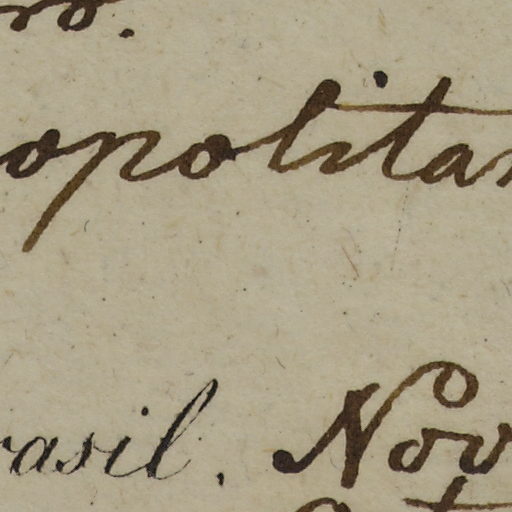 ro.
opolitan
rasil. Nov